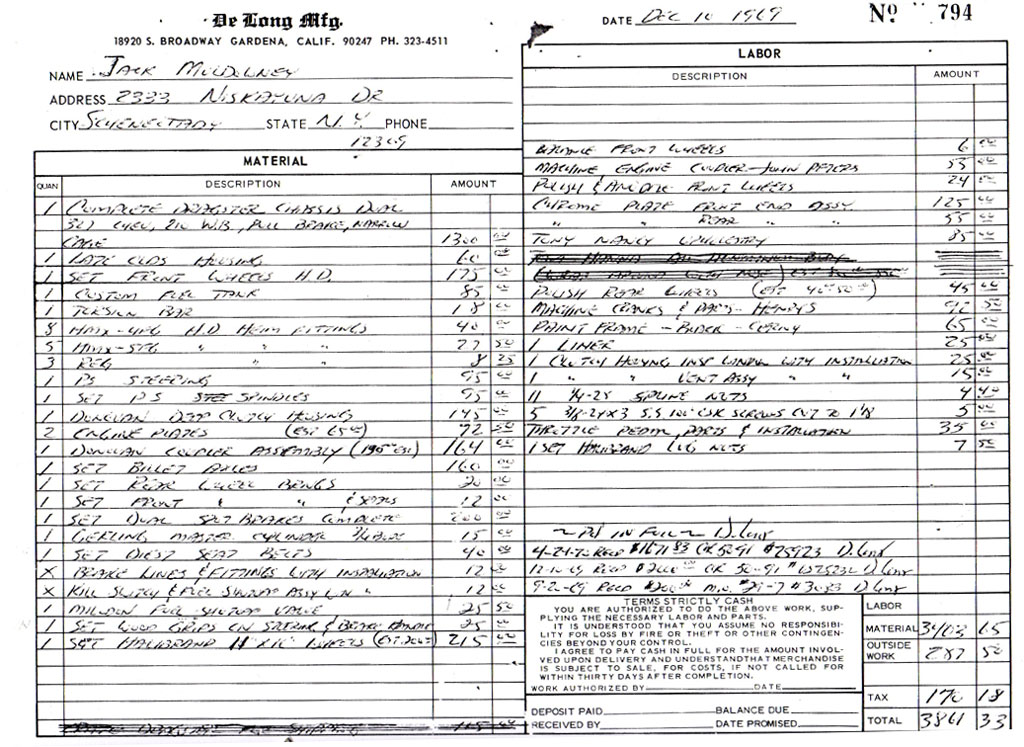 De Long Mfg.
18920 S. BROADWAY GARDENA, CALIF. 90247 PH. 323-4511
NAME Jack Muldowney
ADDRESS 2333 NISKAYUNA DR
CITY SCHENECTADY STATE N.Y. PHONE
12309
MATERIAL
QUAN DESCRIPTION AMOUNT
1 COMPLETE DRAGSTER CHASSIS DUAL
327 CHEV, 210 W.B., FULL BRAKE, NARROW
CAGE 1300 00
1 LATE OLDS HOUSING 60 00
1 SET FRONT WHEELS H.D. 175 00
1 CUSTOM FUEL TANK 85 00
1 TORSION BAR 18 00
8 HMX-4FG H.D HEIM FITTINGS 40 00
5 HMX-5FG " " 27 50
3 REG " " 8 25
1 PS STEERING 95 00
1 SET P S SPINDLES 95 00
1 DONOVAN DEEP CLUTCH HOUSING 145 00
2 ENGINE PLATES (EST 65 00) 72 50
1 DONOVAN COUPLER ASSEMBLY (195 00 EST) 164 00
1 SET BILLET AXLES 160 00
1 SET REAR WHEEL BRNGS 20 00
1 SET FRONT " " & SEALS 12 00
1 SET DUAL SPOT BRAKES COMPLETE 200 00
1 GERLING MASTER CYLINDER 3/4 BORE 15 00
1 SET DIEST SEAT BELTS 40 00
X BRAKE LINES & FITTINGS WITH INSTALLATION 12 00
X KILL SWITCH & FUEL SHUTOFF ASSY W " 12 00
1 FUEL SHUTOFF VALVE 25 50
1 SET WOOD GRIPS ON STEERING & BRAKE HANDLE 25 00
1 SET HALIBRAND 11" X 16" WHEELS 215 00
DATE DEC 10 1969 No 794
LABOR
DESCRIPTION AMOUNT
BALANCE FRONT WHEELS 6 00
MACHINE ENGINE COUPLER - JOHN PETERS 55 00
POLISH & ANODIZE FRONT WHEELS 24 00
CHROME PLATE FRONT END ASSY 125 00
" " REAR 55 00
TONY NANCY UPHOLSTRY 85 00
POLISH REAR WHEELS (EST 40 00 - 50 00) 45 00
MACHINE CRANKS & PARTS - HENRYS 92 50
PAINT FRAME - BLACK - CERNY 65 00
1 LINER 25 00
1 CLUTCH HOUSING INSP WINDOW WITH INSTALLATION 25 00
1 " " VENT ASSY " " 15 00
11 1/4-28 SPLINE NUTS 4 40
5 3/8-24X3 S.S 100° CSK SCREWS CUT TO 1 7/8 5 00
THROTTLE PEDAL, PARTS & INSTALLATION 35 00
1 SET HALIBRAND LUG NUTS 7 50
~ PD IN FULL ~ D. Long
4-24-70 RECD $1671 83 CK 50-91 #25923 D. Long
12-10-69 RECD $2000 00 CK 50-91 D. Long
9-2-69 RECD M.O. D. Long
TERMS STRICTLY CASH
YOU ARE AUTHORIZED TO DO THE ABOVE WORK, SUP-
PLYING THE NECESSARY LABOR AND PARTS.
IT IS UNDERSTOOD THAT YOU ASSUME NO RESPONSIBI-
LITY FOR LOSS BY FIRE OR THEFT OR OTHER CONTINGEN-
CIES BEYOND YOUR CONTROL.
I AGREE TO PAY CASH IN FULL FOR THE AMOUNT INVOL-
VED UPON DELIVERY AND UNDERSTAND THAT MERCHANDISE
IS SUBJECT TO SALE, FOR COSTS, IF NOT CALLED FOR
WITHIN THIRTY DAYS AFTER COMPLETION.
WORK AUTHORIZED BY DATE
DEPOSIT PAID BALANCE DUE
RECEIVED BY DATE PROMISED
LABOR
MATERIAL 3403 65
OUTSIDE WORK 287 50
TAX 170 18
TOTAL 3861 33